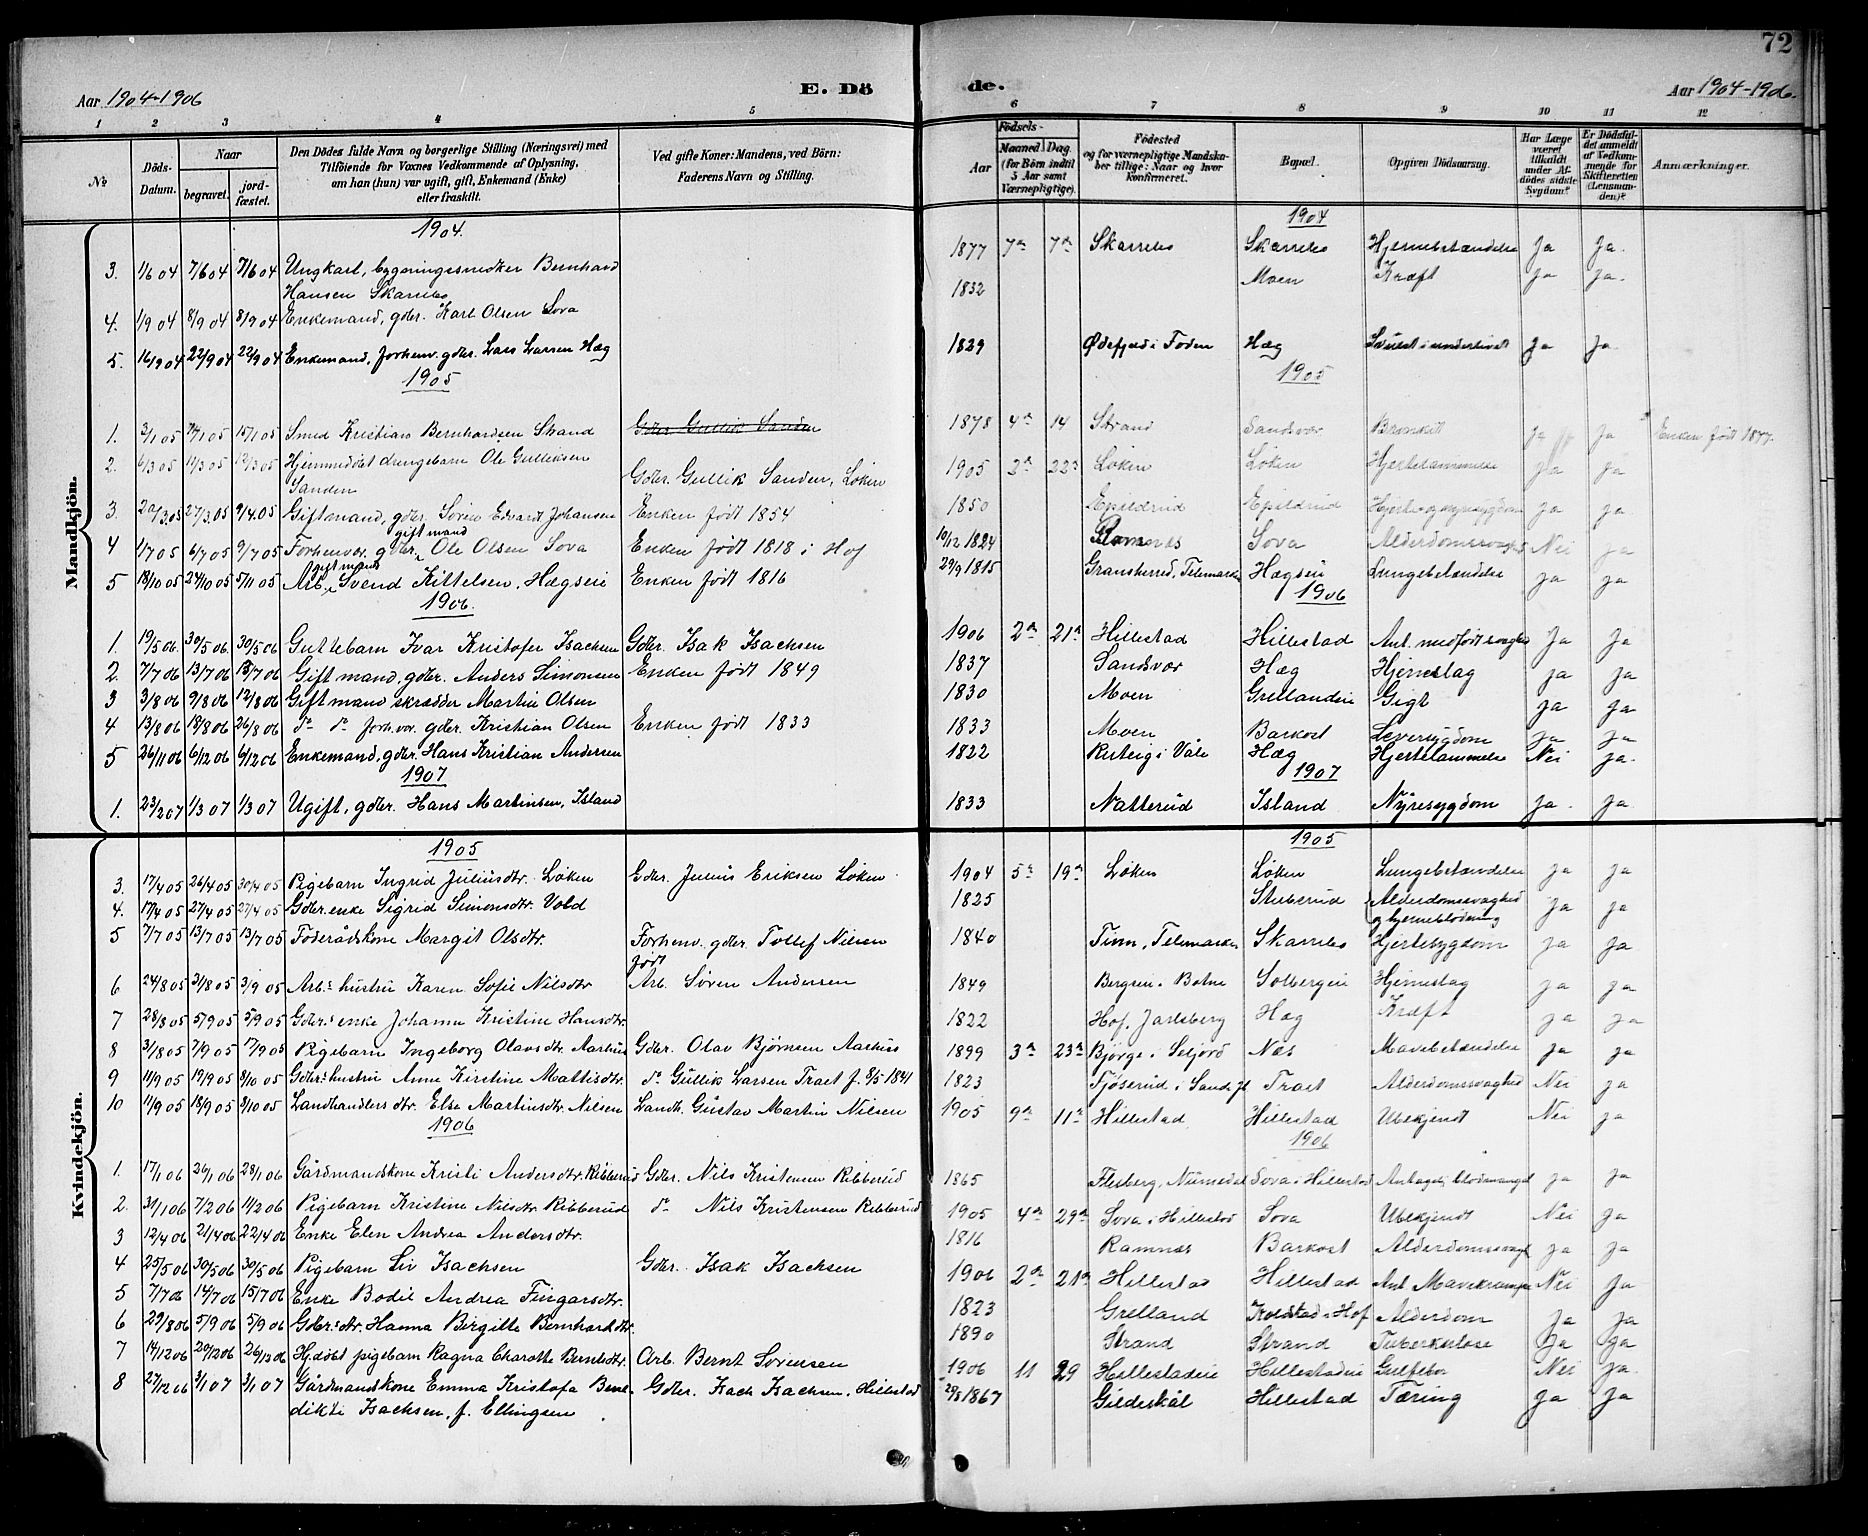 72
Aar 1904-1906
E. Dö
de.
Aar 1904-1906.
1 2 3 4 5 6 7 8 9 10 11 12
№
Döds-Datum.
Naar
begravet.
jord-fæstet.
Den Dödes fulde Navn og borgerlige Stilling (Næringsvei) med
Tilföiende for Voxnes Vedkommende af Oplysning,
om han (hun) var ugift, gift, Enkemand (Enke)
eller fraskilt.
Ved gifte Koner: Mandens, ved Börn:
Faderens Navn og Stilling.
Födsels-
Aar
Maaned
Dag.
(for Börn indtil
5 Aar samt
Værnepligtige).
Födested
og for værnepligtige Mandska-
ber tillige: Naar og hvor
konfirmeret.
Bopæl.
Opgiven Dödsaarsag.
Har Læge
været
tilkaldt
under Af-
dödes sidste
Sygdom?
Er Dödsfal-
det anmeldt
af Vedkom-
mende for
Skifteretten
(Lensman-
den)?
Anmærkninger.
Mandkjön.
1904. 1904
3. 1/6 04 7/6 04 7/6 04 Ungkarl, bygningssnedker Bernhard 1877 7 7 Skarrebo Skarrebo Hjernebetændelse Ja Ja.
Hansen Skarrebo
4. 1/9 04 8/9 04 8/9 04 Enkemand, gdbr. Karl Olsen Sova 1832 Moen Kræft Ja Ja.
5. 16/9 04 22/9 04 22/9 04 Enkemand, forhenv. gdbr. Lars Larsen Hæg 1829 Hæg Svulst i underlivet Ja Ja.
1905 1905
1. 3/1 05 15/1 05 Smed Kristian Bernhardsen Strand Gdbr Gullik Sanden 1878 4 14 Strand Sandsvær Bronkitt Ja Enken født 1877.
2. 6/3 05 Hjemmedøbt drengebarn Ole Gulliksen Gdbr. Gullik Sanden, Løken 1905 2 22 Løken Løken Hjertelammelse Ja Ja
Sanden
3. 20/3 05 27/3 05 9/4 05 Giftmand, gdbr. Søren Edvardt Johansen Enken født 1854 1850 Epildrud Epildrud Ja Ja
gift mand
4 1/7 05 6/7 05 9/7 05 Forhenv. gdbr. Ole Olsen Sova Enken født 1818 i Hof 10/12 1824 Ramnes Sova Alderdomssvaghed Nei Ja
gift mand
5 18/10 05 24/10 05 5/11 05 Arb. Svend Kittelsen, Hægseie Enken født 1816 29/9 1815 Gransherred, Telemarken Hægseie Lungebetændelse Ja Ja
1906. 1906
1. 19/5 06 30/5 06 30/5 06 Guttebarn Ivar Kristofer Isachsen Gdbr. Isak Isachsen 1906 2 21 Hillestad Hillestad Ant. medfødt svaghed Ja Ja
2. 7/7 06 13/7 06 13/7 06 Gift mand, gdbr. Anders Simonsen Enken født 1849 1837 Sandsvær Hæg Hjerneslag Ja Ja
3 3/8 06 9/8 06 12/8 06 Gift mand skrædder Martin Olsen 1830 Moen Grellandeie Gigt Ja Ja
4 13/8 06 18/8 06 26/8 06 do do forhenv. gdbr. Kristian Olsen Enken født 1833 1833 Moen Barkost Leversygdom Ja Ja
5 26/11 06 6/12 06 6/12 06 Enkemand, gdbr. Hans Kristian Andersen 1822 i Våle Hæg Hjertelammelse Nei Ja.
1907 1907
1. 23/2 07 1/3 07 1/3 07 Ugift, gdbr. Hans Martinsen, Island 1833 Natterud Island Nyresygdom Ja. Ja.
Kvindekjön.
1905 1905
3. 17/4 05 26/4 05 30/4 05 Pigebarn Ingrid Juliusdtr. Løken Gdbr. Julius Eriksen Løken 1904 5 19 Løken Løken Lungebetændelse Ja Ja
4. 17/4 05 27/4 05 27/4 05 Gdbr. enke Sigrid Simonsdtr. Vold 1825 Stuberud Alderdomssvaghed Ja Ja
og hjerneblødning
5 7/7 05 13/7 05 13/7 05 Føderådskone Margit Olsdtr. Forhenv. gdbr Tollef Nilsen 1840 Tinn, Telemarken Skarrebo Hjertesygdom Ja Ja
født
6 24/8 05 31/8 05 3/9 05 Arb.s hustru Karen Sofie Nilsdtr Arb. Søren Andersen 1849 Botne Solbergeie Hjerneslag Ja Ja
7 28/8 05 5/9 05 5/9 05 Gdbr.s enke Johanne Kristine Hansdtr. 1822 Hof, Jarlsberg Hæg Kræft Ja Ja
8 31/8 05 7/9 05 17/9 05 Pigebarn Ingeborg Olavsdtr. Aarhus Gdbr. Olav Bjørnsen Aarhus 1899 3 23 Bjørge i Seljord Næs Mavebetændelse Ja Ja
9 11/9 05 19/9 05 8/10 05 Gdbr.s hustru Anne Kirstine Mattisdtr. do Gullik Larsen Traet f. 8/5 1841 1823 Fjøserud i Sandsv. Traet Alderdomssvaghed Nei Ja
10 11/9 05 18/9 05 8/10 05 Landhandlers dtr. Else Martinsdtr. Nilsen Landh. Gustav Martin Nilsen 1905 9 11 Hillestad Hillestad Ubekjendt Nei Ja
1906 1906
1. 17/1 06 26/1 06 28/1 06 Gårdmandskone Kristi Andersdtr. Ribberud Gdbr. Nils Kristensen Ribberud 1865 Flesberg, Numedal Sova i Hillestad Antagelig blodmangel Ja Ja
2. 30/1 06 7/2 06 11/2 06 Pigebarn Kristine Nilsdtr Ribberud do Nils Kristensen Ribberud 1905 4 29 Sova i Hillestad Sova Ubekjendt Nei Ja
3 12/4 06 21/4 06 22/4 06 Enke Elen Andrea Andersdtr. 1816 Ramnæs Barkost Alderdomssvagh Ja Ja
4 25/5 06 30/5 06 30/5 06 Pigebarn Liv Isachsen Gdbr. Isak Isachsen 1906 2 21 Hillestad Hillestad Ant Mavekrampe Nei Ja
5 7/7 06 14/7 06 15/7 06 Enke Bodil Andrea Fingarsdtr. 1823 Grelland i Hof Alderdom Ja Ja
6 29/8 06 5/9 06 5/9 06 Gdbr.s dtr. Hanna Birgitte Bernhardtdtr. 1890 Strand Strand Tuberkulose Ja Ja
7 14/12 06 20/12 06 26/12 06 Hj.døbt pigebarn Ragna Charotte Berntsdtr. Arb. Bernt Sørensen 1906 11 29 Hillestadeie Hillestadeie Nei Ja.
8 27/12 06 3/1 07 3/1 07 Gårdmandskone Emma Kristofa Bene- Gdbr. Isach Isachsen, Hillestad 29/8 1867 Gildeskål Hillestad Tæring Ja Ja
dikte Isachsen, f. Ellingsen